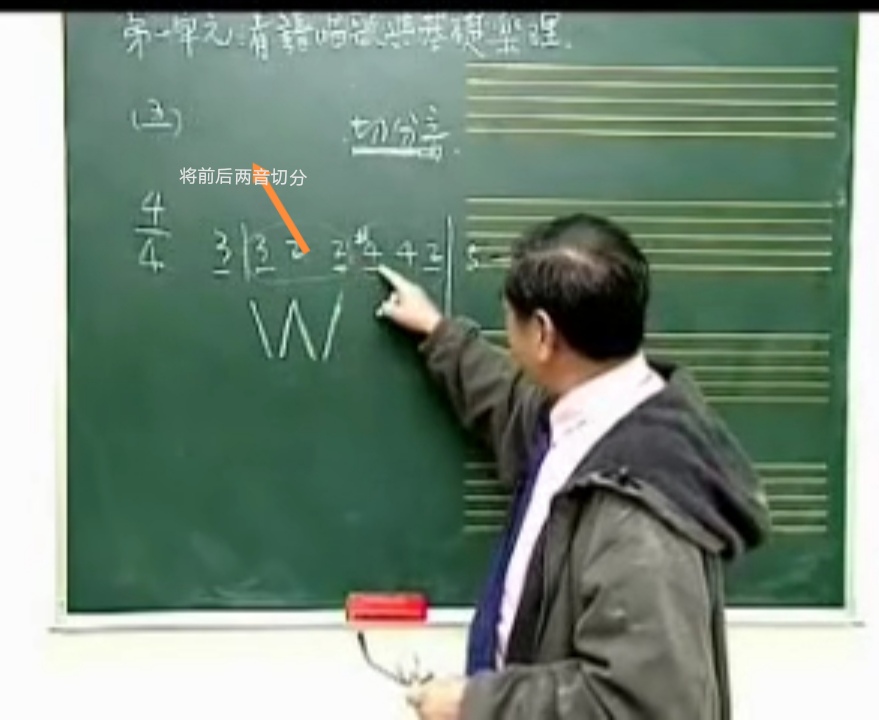 第一单元:看譜唱歌與基礎樂理.
(3)
切分音
将前后两音切分
4/4 3 | 3 2 2 #4 4 2 | 5